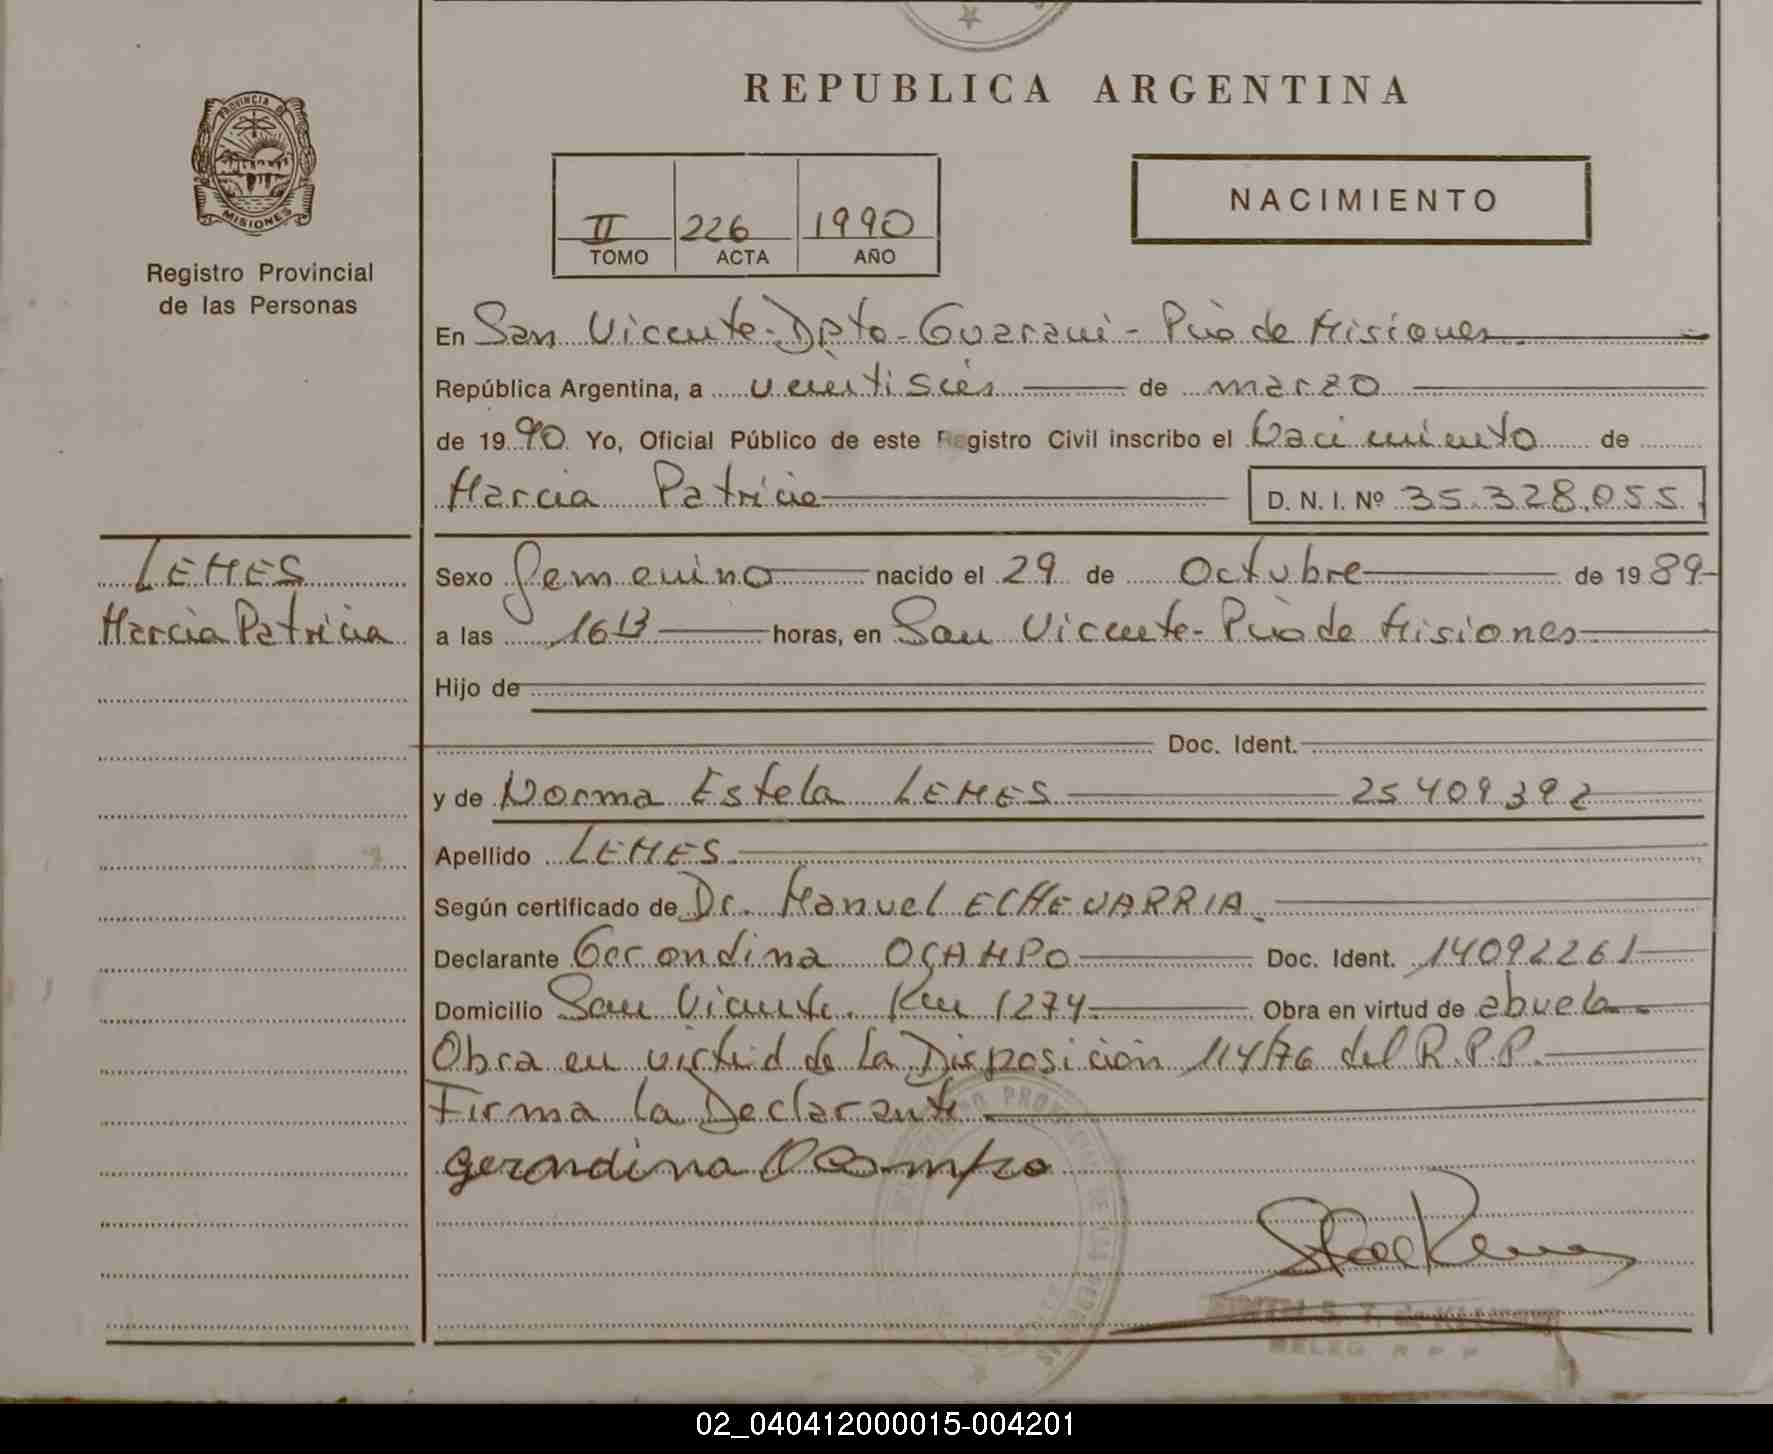 REPUBLICA ARGENTINA
PROVINCIA DE
MISIONES
Registro Provincial
de las Personas
II 226 1990
TOMO ACTA AÑO
NACIMIENTO
En San Vicente - Dpto - Guaraní - Pcia de Misiones
República Argentina, a veintiseis de marzo
de 1990 Yo, Oficial Público de este Registro Civil inscribo el Nacimiento de
Marcia Patricia D. N. I. Nº 35.328.055
LEMES
Marcia Patricia
Sexo Femenino nacido el 29 de Octubre de 1989
a las 16 horas, en San Vicente - Pcia de Misiones
Hijo de
Doc. Ident.
y de Norma Estela LEMES 25409392
Apellido LEMES
Según certificado de Dr. Manuel ECHEVARRIA.
Declarante Gerondina OCAMPO Doc. Ident. 14092261
Domicilio San Vicente. Km 1274 Obra en virtud de abuela
Obra en virtud de La Disposición 114/76 del R.P.P.
Firma la Declarante
Gerondina Ocampo
02_040412000015-004201